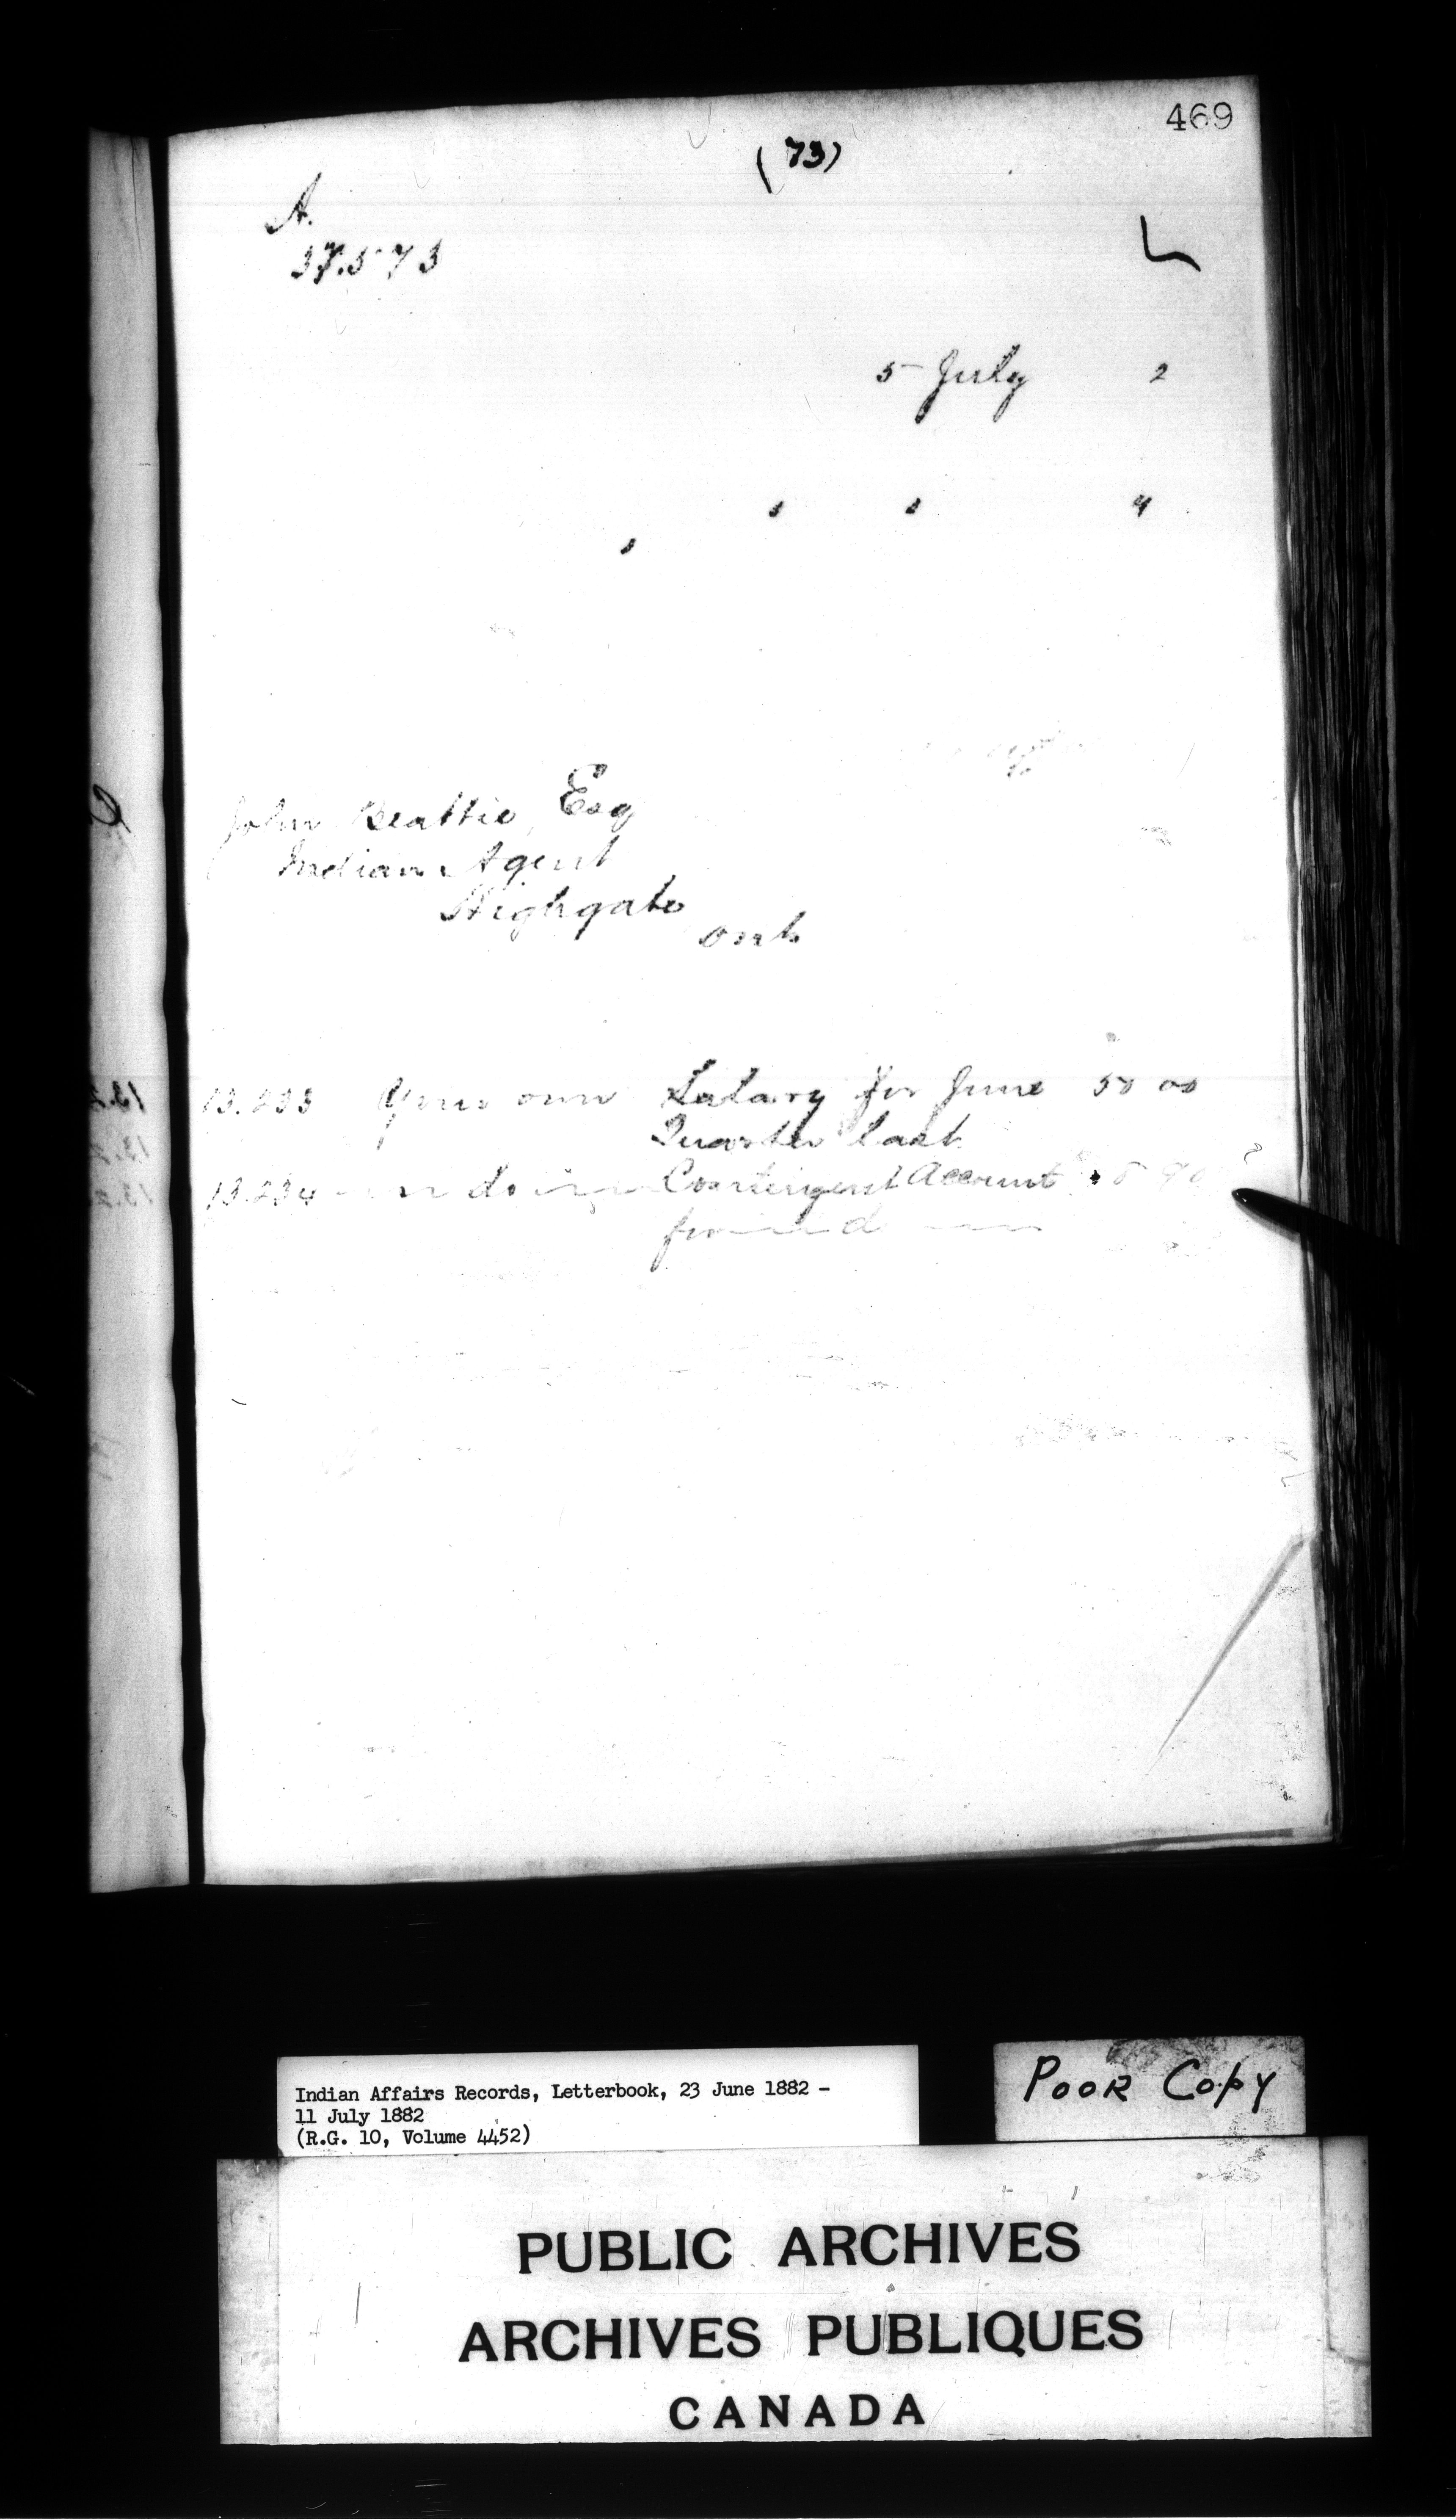 469
(73)
A.
37.573
5 July 2
" " 4
"
John Beattie, Esq
Indian Agent
Highgate
Ont.
13.233 Your own Salary for June 50 00
Quarter last
13.234 do Contingent Account
Indian Affairs Records, Letterbook, 23 June 1882 -
11 July 1882
(R.G. 10, Volume 4452)
POOR COPY
PUBLIC ARCHIVES
ARCHIVES PUBLIQUES
CANADA